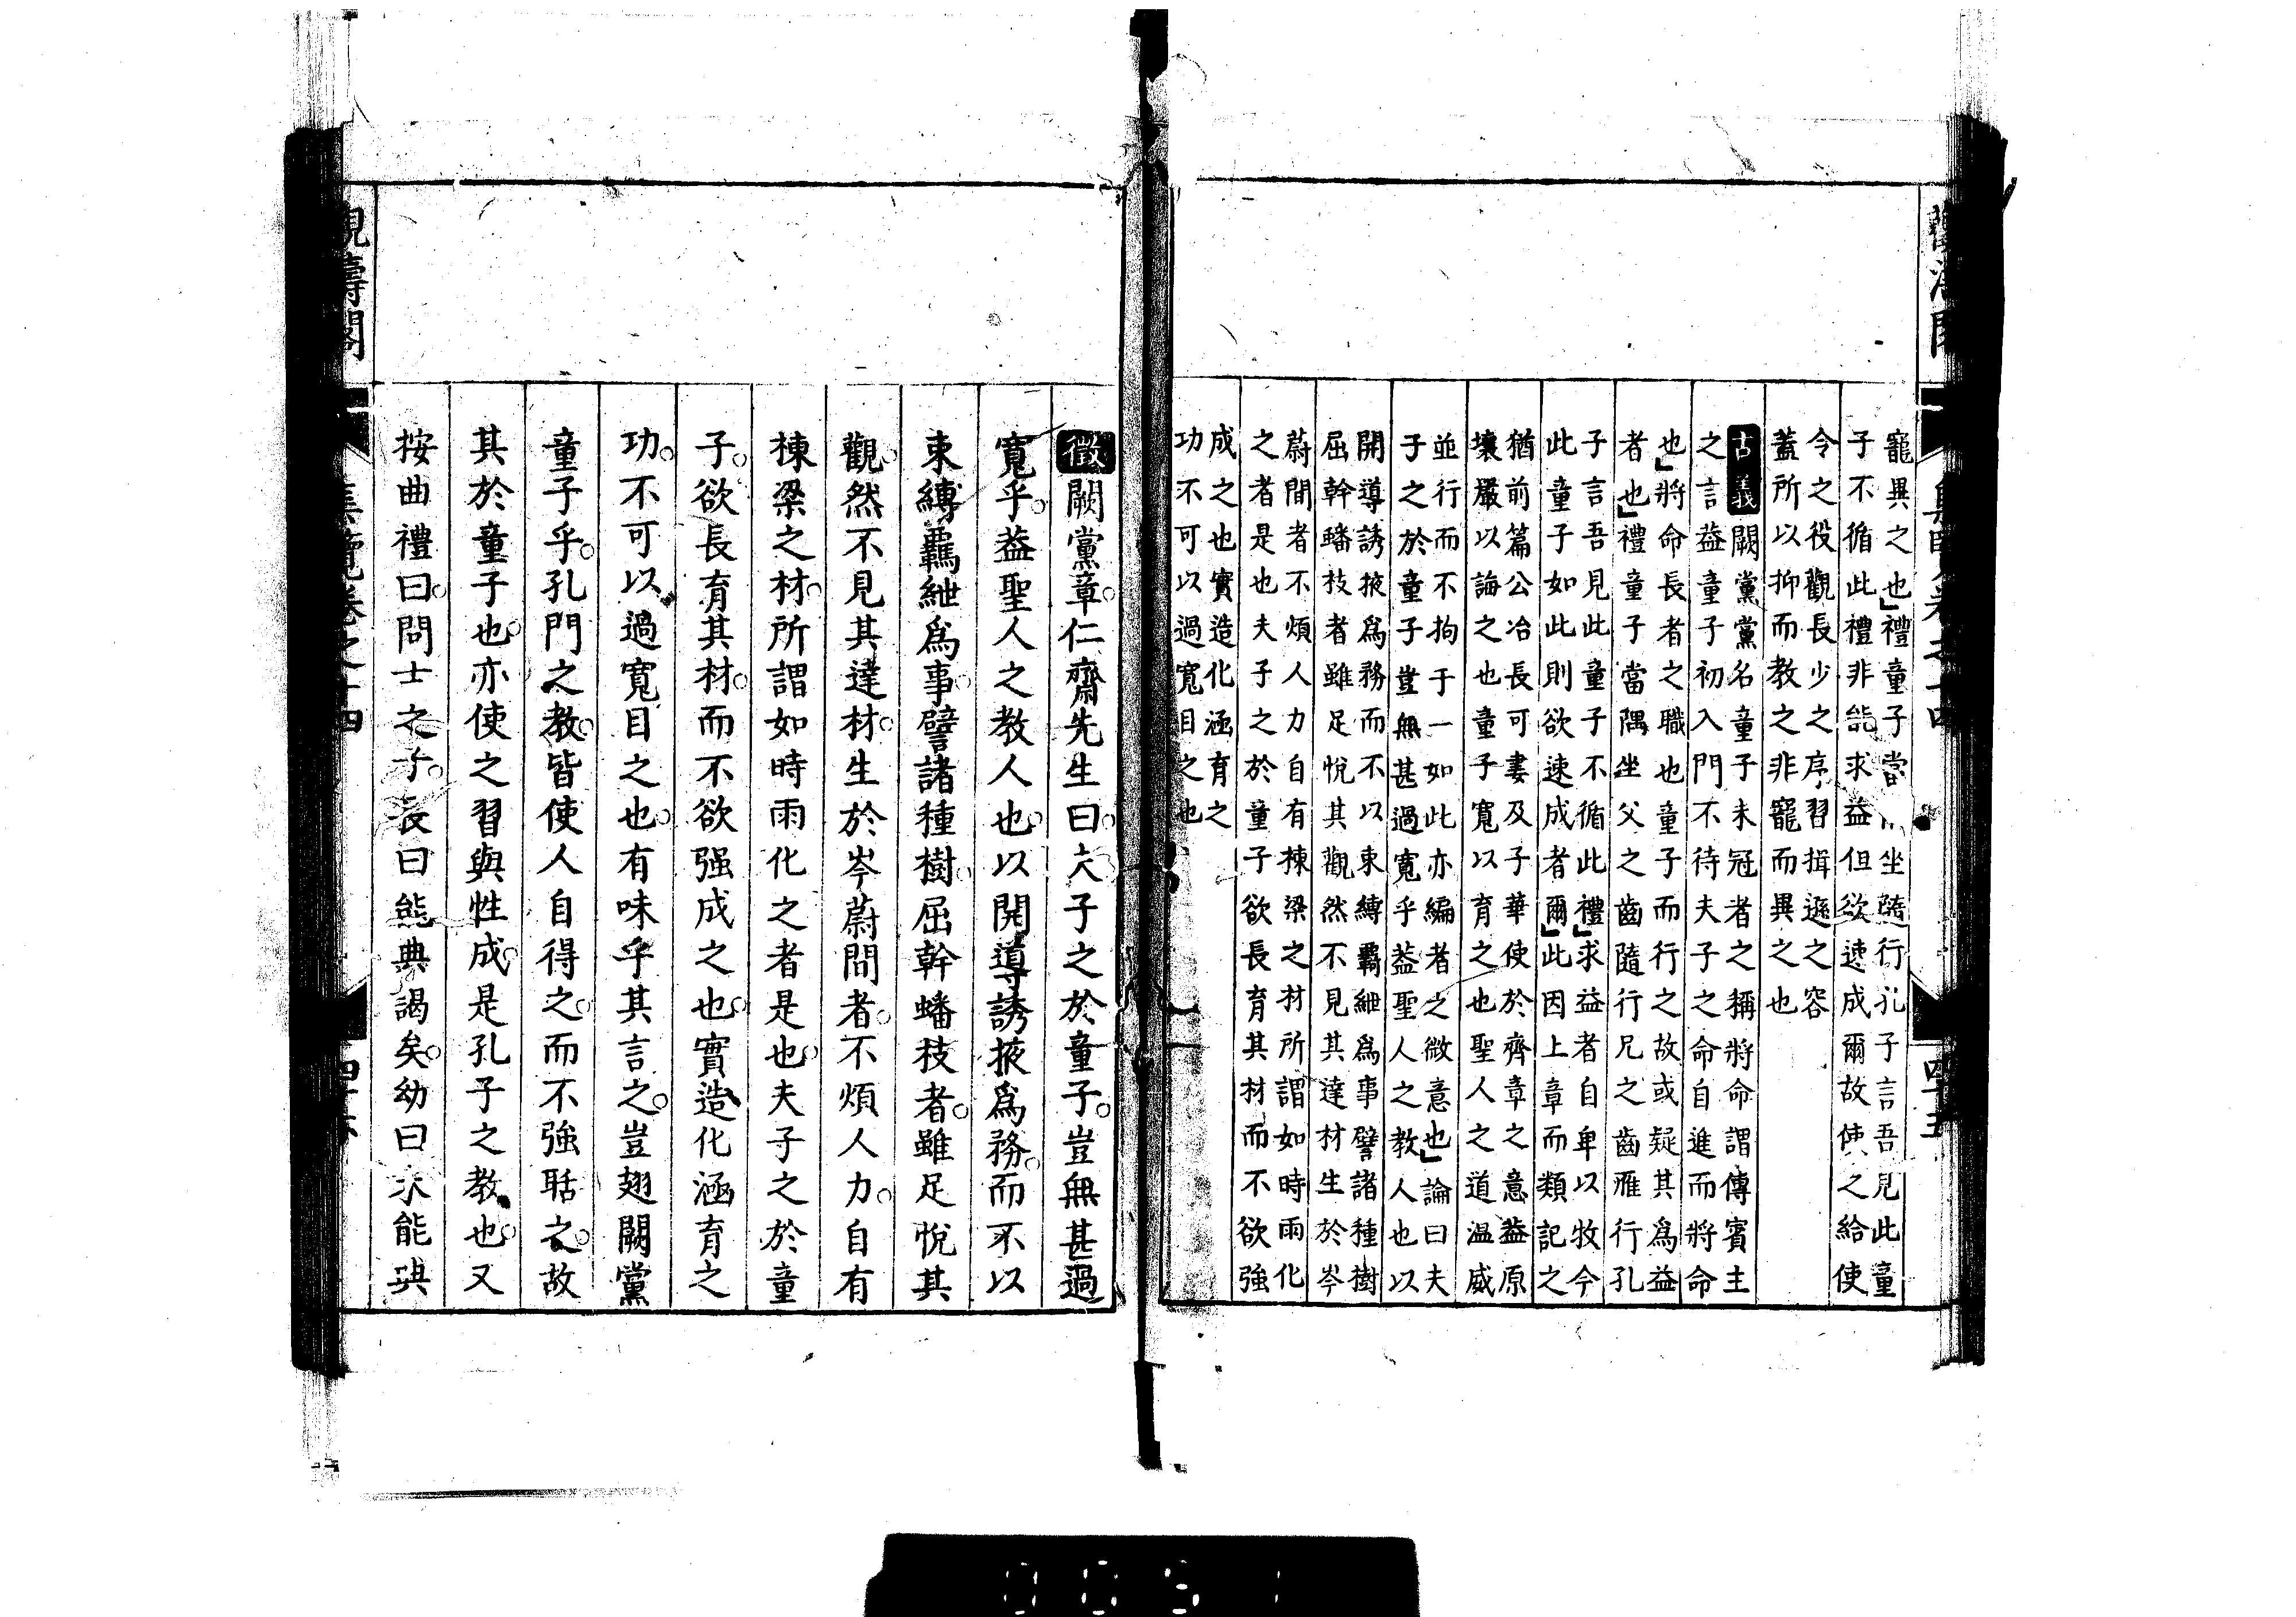 寵異之也」禮童子當坐隨行孔子言吾見此童
子不循此禮非能求益但欲速成爾故使之給使
令之役觀長少之序習揖遜之容
蓋所以抑而教之非寵而異之也
古義闕黨黨名童子未冠者之稱將命謂傳賓主
之言益童子初入門不待夫子之命自進而將命
也」將命長者之職也童子而行之故或疑其爲益
者也」禮童子當隅坐父之齒隨行兄之齒雁行孔
子言吾見此童子不循此禮」求益者自卑以牧今
此童子如此則欲速成者爾」此因上章而類記之
猶前篇公冶長可妻及子華使於齊章之意蓋原
壤嚴以誨之也童子寬以育之也聖人之道温威
並行而不拘于一如此亦編者之微意也」論曰夫
子之於童子豈無甚過寬乎蓋聖人之教人也以
開導誘掖爲務而不以束縛羈紲爲事譬諸種樹
屈幹蟠枝者雖足悅其觀然不見其達材生於岑
蔚間者不煩人力自有棟梁之材所謂如時雨化
之者是也夫子之於童子欲長育其材而不欲強
成之也實造化涵育之
功不可以過寬目之也
徵闕黨章。仁齋先生曰。夫子之於童子。豈無甚過
寬乎。蓋聖人之教人也。以開導誘掖爲務。而不以
束縛羈紲爲事。譬諸種樹。屈幹蟠枝者。雖足悅其
觀。然不見其達材。生於岑蔚間者。不煩人力。自有
棟梁之材。所謂如時雨化之者是也。夫子之於童
子。欲長育其材。而不欲强成之也。實造化涵育之
功。不可以過寬目之也。有味乎其言之。豈翅闕黨
童子乎。孔門之教。皆使人自得之。而不強聒之。故
其於童子也。亦使之習與性成。是孔子之教也。又
按曲禮曰。問士之子。長曰能典謁矣。幼曰未能典
觀濤閣
集覽卷之十四
四十六